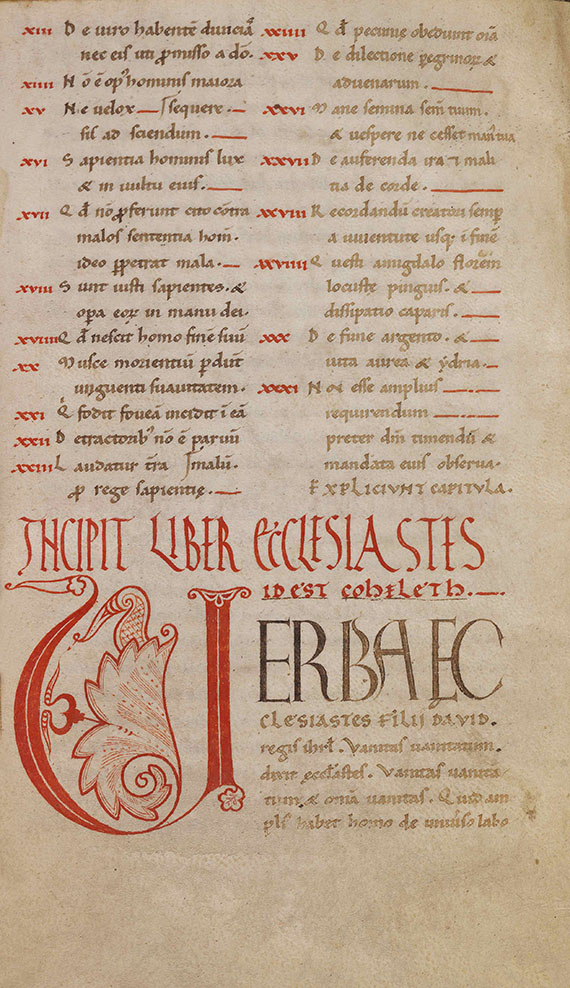 xiii De viro habentē divicias
nec eis uti ꝓmisso a dō.
xiiii Nō ē opꝰ hominis maiora
xv Ne velox sequere
fil ad sciendum.
xvi Sapientia hominis lux
& in vultu eius.
xvii Qd nō ꝓferunt cito cōtra
malos sententia hom̄.
ideo ꝑpetrat mala.
xviii Sunt iusti sapientes. &
opa eoꝝ in manu dei.
xviiii Qd nescit homo finē suū
xx Musce morientiū ꝑdūt
unguenti suavitatem.
xxi Q̇ fodit foveā incidit ī eā
xxii Detractoribꝰ nō ē parvū
xxiii Laudatur tr̄a malū.
ꝓ rege sapientię.
xxiiii Qd pecunię obediunt oīa
xxv De dilectione peregrinoꝝ &
advenarum.
xxvi Mane semina sem̄ tuum.
& vespere ne cesset man̄ tua
xxvii De auferenda ira & mali
tia de corde.
xxviii Recordandū creatori semꝑ
a iuventute usq; ī finē
xxviiii Questi amigdalo florem
locustę pinguis. &
dissipatio caparis.
xxx De fune argento. &
vita aurea & ydria.
xxxi Non esse amplius
requirendum
preter dm̄ timendū &
mandata eius observa.
EXPLICIUNT CAPITULA.
INCIPIT LIBER ECCLESIASTES
ID EST COHELETH.
VERBA EC
CLESIASTES FILII DAVID.
regis ihrl. Vanitas vanitatum.
dixit eccl̄astes. Vanitas vanita
tum & omīa vanitas. Quid am
pl̄s habet homo de univ̄so labo